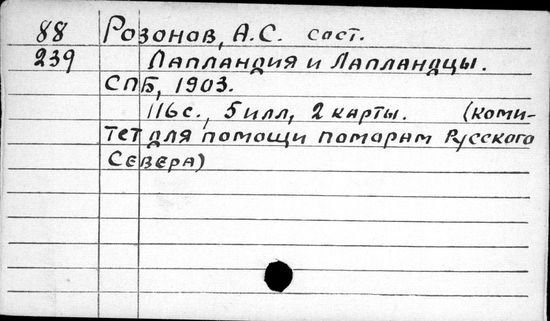 88 Розонов, А.С. сост.
239 Лапландия и Лапландцы.
СПБ, 1903.
116с., 5илл, 2 карты. (коми-
тет для помощи поморам Русского
Севера)